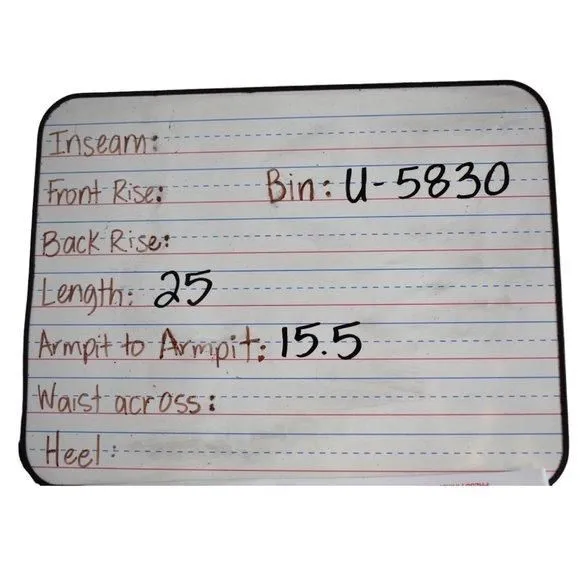 Inseam:
Front Rise: Bin: U-5830
Back Rise:
Length: 25
Armpit to Armpit: 15.5
Waist across:
Heel: